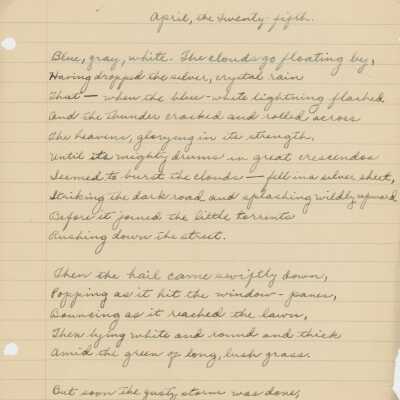 April, the twenty-fifth.
Blue, gray, white. The clouds go floating by,
Having dropped the silver, crystal rain
That — when the blue-white lightning flashed
And the thunder cracked and rolled across
The heavens, glorying in its strength,
Until its mighty drums in great crescendos
Seemed to burst the clouds — fell in a silver sheet,
Striking the dark road and splashing wildly upward
Before it joined the little torrents
Rushing down the street.
Then the hail came swiftly down,
Popping as it hit the window-panes,
Bouncing as it reached the lawn,
Then lying white and round and thick
Amid the green of long, lush grass.
But soon the gusty storm was done,